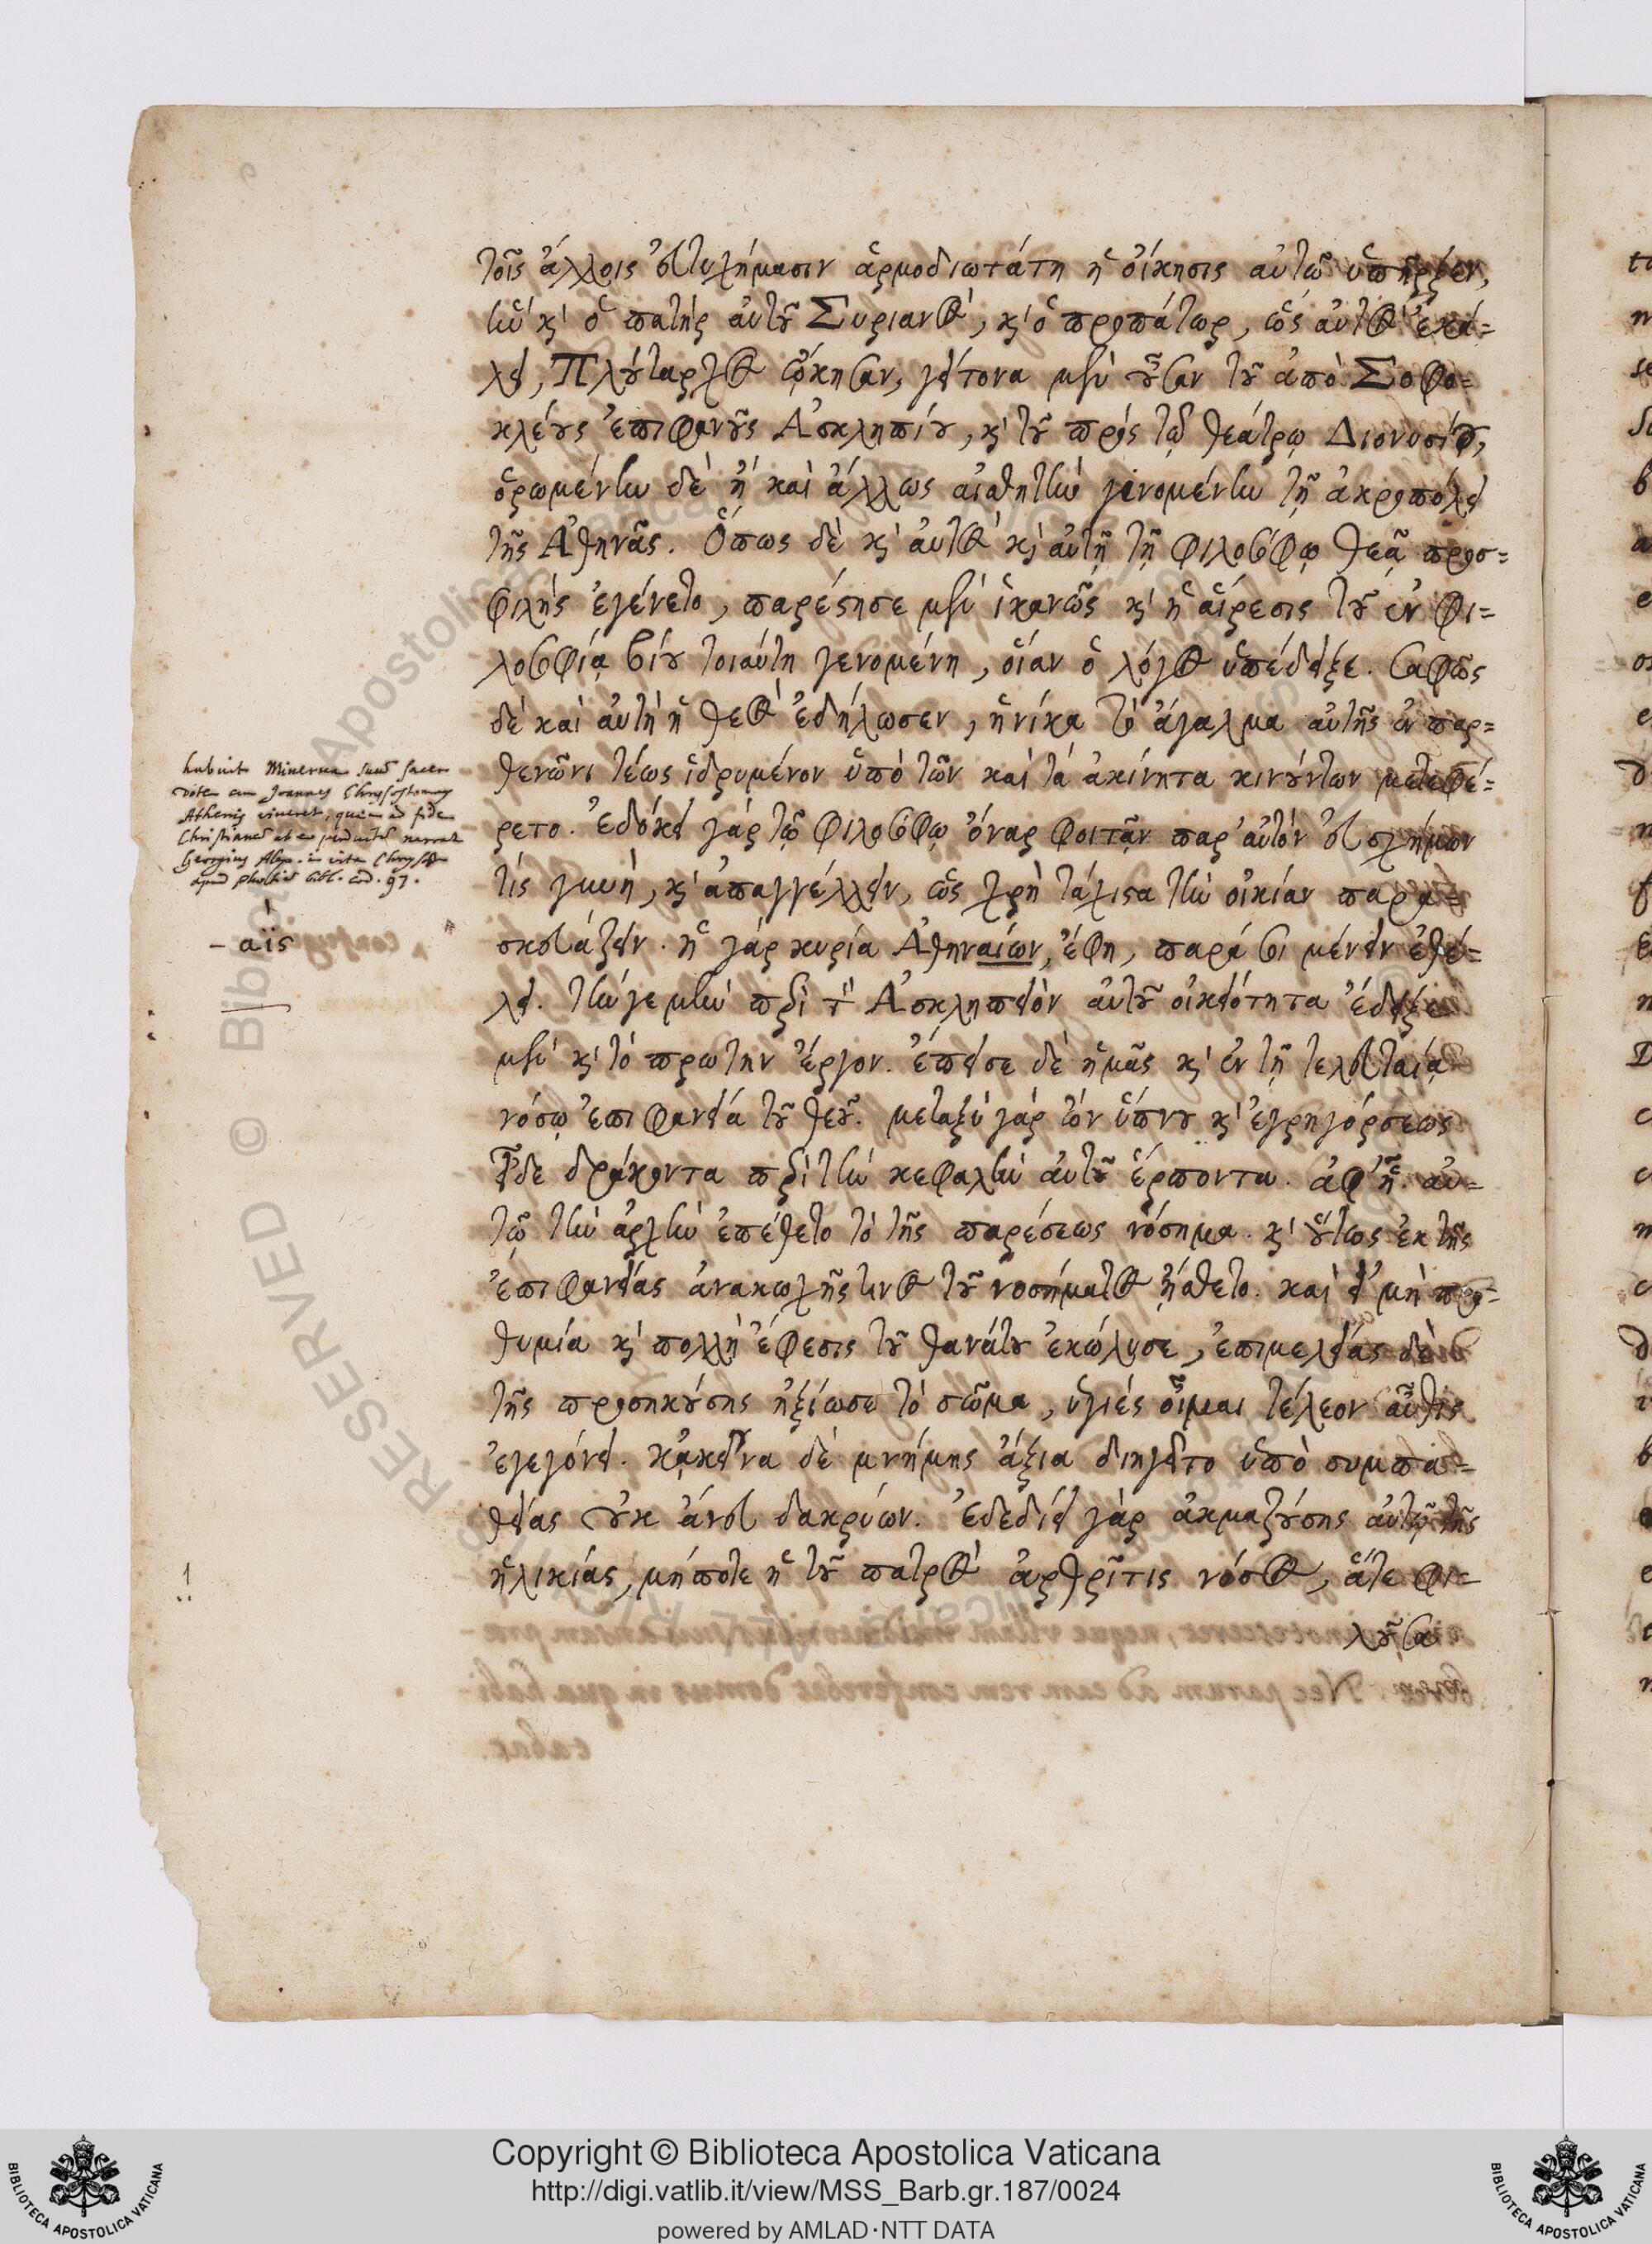 τοῖς ἄλλοις εὐτυχήμασιν ἁρμοδιωτάτη ἡ οἴκησις αὐτῷ ὑπῆρξεν,
ἣν κ̀ ὁ πατὴρ αὐτοῦ Συριανὸς, κ̀ ὁ προπάτωρ, ὡς αὐτὸς ἐκά=
λει, Πλούταρχος ᾤκησαν, γείτονα μὲν οὖσαν τοῦ ἀπὸ Σοφο=
κλέους ἐπιφανοῦς Ἀσκληπιοῦ, κ̀ τοῦ πρὸς τῷ θεάτρῳ Διονυσίου,
ὁρωμένην δὲ ἢ καὶ ἄλλως αἰσθητὴν γινομένην τῇ ἀκροπόλει
τῆς Ἀθηνᾶς. Ὅπως δὲ κ̀ αὐτὸς κ̀ αὐτῇ τῇ φιλοσόφῳ θεᾷ προσ=
φιλὴς ἐγένετο, παρέστησε μὲν ἱκανῶς κ̀ ἡ αἵρεσις τοῦ ἐν φι=
λοσοφίᾳ βίου τοιαύτη γενομένη, οἵαν ὁ λόγος ὑπέδειξε. σαφῶς
δὲ καὶ αὐτὴ ἡ θεὸς ἐδήλωσεν, ἡνίκα τὸ ἄγαλμα αὐτῆς ἐν παρ=
θενῶνι τέως ἱδρυμένον ὑπὸ τῶν καὶ τὰ ἀκίνητα κινούντων μετεφέ=
ρετο. ἐδόκει γὰρ τῷ φιλοσόφῳ ὄναρ φοιτᾷν παρ' αὐτὸν εὐσχήμων
τὶς γυνὴ, κ̀ ἀπαγγέλλειν, ὡς χρὴ τάχιστα τὴν οἰκίαν παρα=
σκευάζειν. ἡ γὰρ κυρία Ἀθηναίων, ἔφη, παρά σοι μένειν ἐθέ=
λει. τὴν γε μὴν περὶ τὸν Ἀσκληπειὸν αὐτοῦ οἰκειότητα ἔδειξε
μὲν κ̀ τὸ πρώτην ἔργον. ἔπεισε δὲ ἡμᾶς κ̀ ἐν τῇ τελευταίᾳ
νόσῳ ἐπιφανείᾳ τοῦ θεοῦ. μεταξὺ γὰρ ὢν ὕπνου κ̀ ἐγρηγόρσεως
εἶδε δράκοντα περὶ τὴν κεφαλὴν αὐτοῦ ἕρποντα. ἀφ' ἧς αὐ=
τῷ τὴν ἀρχὴν ἐπέθετο τὸ τῆς παρέσεως νόσημα. κ̀ οὕτως ἐκ τῆς
ἐπιφανείας ἀνακωχῆς τινος τοῦ νοσήματος ᾔσθετο. καὶ εἰ μὴ προ=
θυμία κ̀ πολλὴ ἔφεσις τοῦ θανάτου ἐκώλυσε, ἐπιμελείας δὲ
τῆς προσηκούσης ἠξίωσε τὸ σῶμα, ὑγιὲς οἶμαι τέλεον αὖθις
ἐγεγόνει. κᾀκεῖνα δὲ μνήμης ἄξια διηγεῖτο ὑπὸ συμπα=
θείας οὐκ ἄνευ δακρύων. ἐδεδίει γὰρ ἀκμαζούσης αὐτῷ τῆς
ἡλικίας, μήποτε ἡ τοῦ πατρὸς ἀρθρῖτις νόσος, ἅτε φι=
λοῦσα
habuit Minerva suam sacer
dotem cum Joannes Chrysostomus
Athenis viveret, quam ad fidem
Christianam ab eo perductam narrat
Georgius Alex. in vita Chrysost.
apud Photium bibl. cod. 97.
- αϊς
RESERVED © Biblioteca Apostolica Vaticana
Copyright © Biblioteca Apostolica Vaticana
http://digi.vatlib.it/view/MSS_Barb.gr.187/0024
powered by AMLAD·NTT DATA
BIBLIOTECA APOSTOLICA VATICANA
BIBLIOTECA APOSTOLICA VATICANA